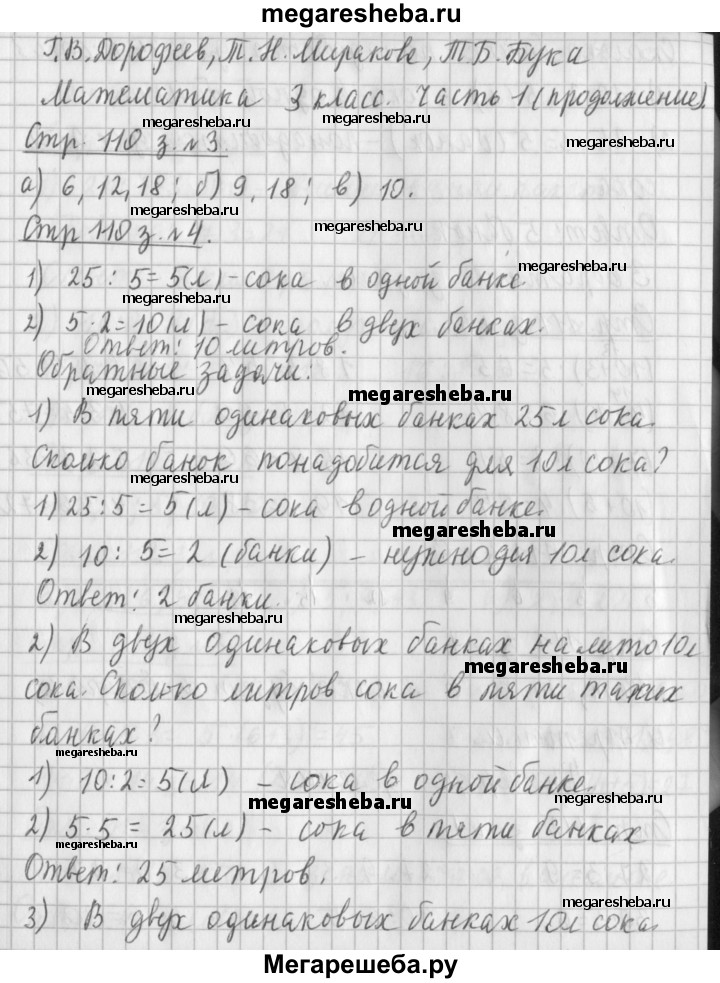 megaresheba.ru
Г.В. Дорофеев, Т.Н. Миракове, Т.Б. Бука
Математика 3 класс. Часть 1 (продолжение).
megaresheba.ru
megaresheba.ru
Стр. 110 з. №3.
megaresheba.ru
а) 6, 12, 18; б) 9, 18; в) 10.
megaresheba.ru
megaresheba.ru
Стр 110 з. №4.
1) 25 : 5 = 5 (л) – сока в одной банке.
megaresheba.ru
megaresheba.ru
2) 5 · 2 = 10 (л) – сока в двух банках.
Ответ: 10 литров.
megaresheba.ru
Обратные задачи:
megaresheba.ru
1) В пяти одинаковых банках 25 л сока.
Сколько банок понадобится для 10 л сока?
megaresheba.ru
1) 25 : 5 = 5 (л) – сока в одной банке.
megaresheba.ru
2) 10 : 5 = 2 (банки) – нужно для 10 л сока.
Ответ: 2 банки.
megaresheba.ru
2) В двух одинаковых банках налито 10 л
megaresheba.ru
сока. Сколько литров сока в пяти таких
банках?
megaresheba.ru
1) 10 : 2 = 5 (л) – сока в одной банке.
megaresheba.ru
megaresheba.ru
2) 5 · 5 = 25 (л) – сока в пяти банках
megaresheba.ru
Ответ: 25 литров.
megaresheba.ru
3) В двух одинаковых банках 10 л сока.
Мегарешеба.ру